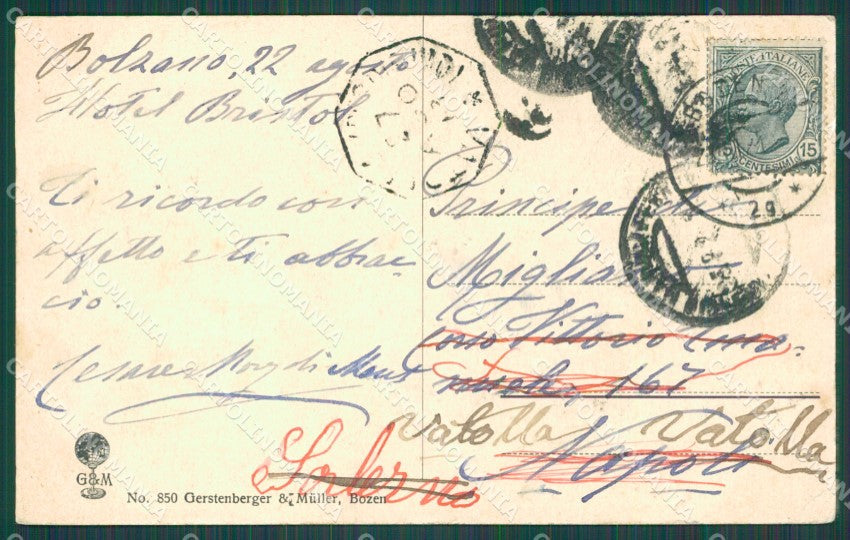 Bolzano, 22 agosto
Hotel Bristol
Ti ricordo con
affetto e ti abbrac-
cio.
Cesare
Principe di
Migliano
Corso Vittorio Ema-
nuele, 167
Napoli
Vatolla Vatolla
Salerno
POSTE ITALIANE
15 CENTESIMI 15
29
G&M
No. 850 Gerstenberger & Müller, Bozen
CARTOLINOMANIA